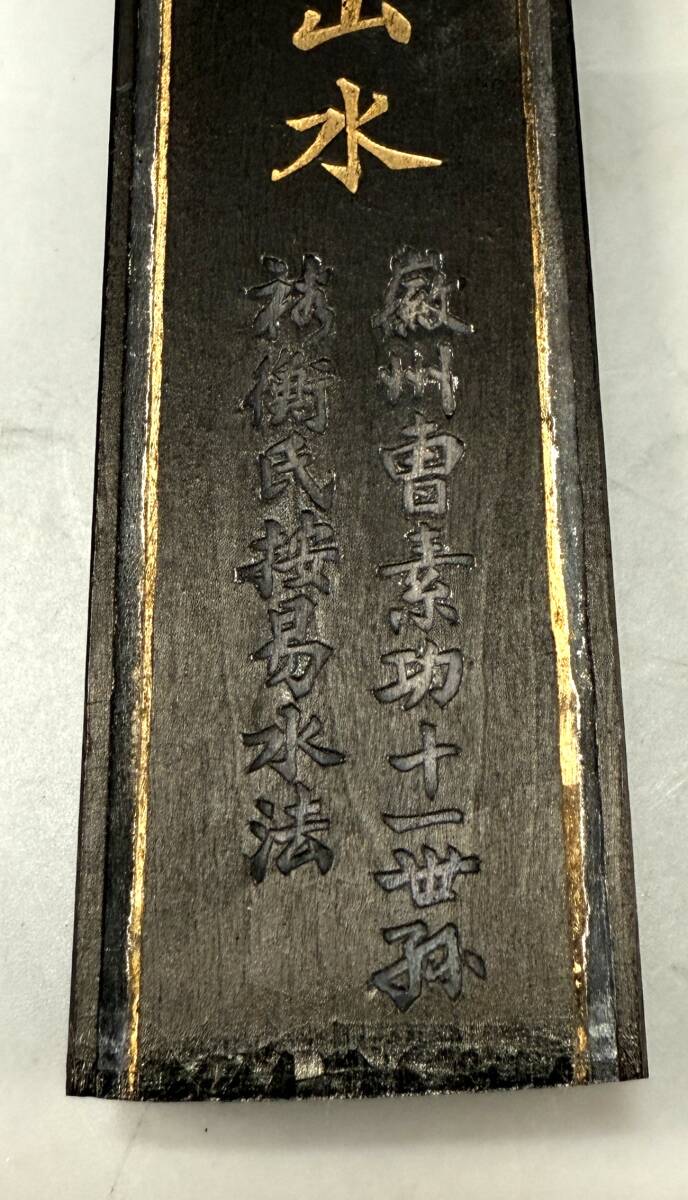 山水
徽州曺素功十一世孫
裕衡氏按易水法